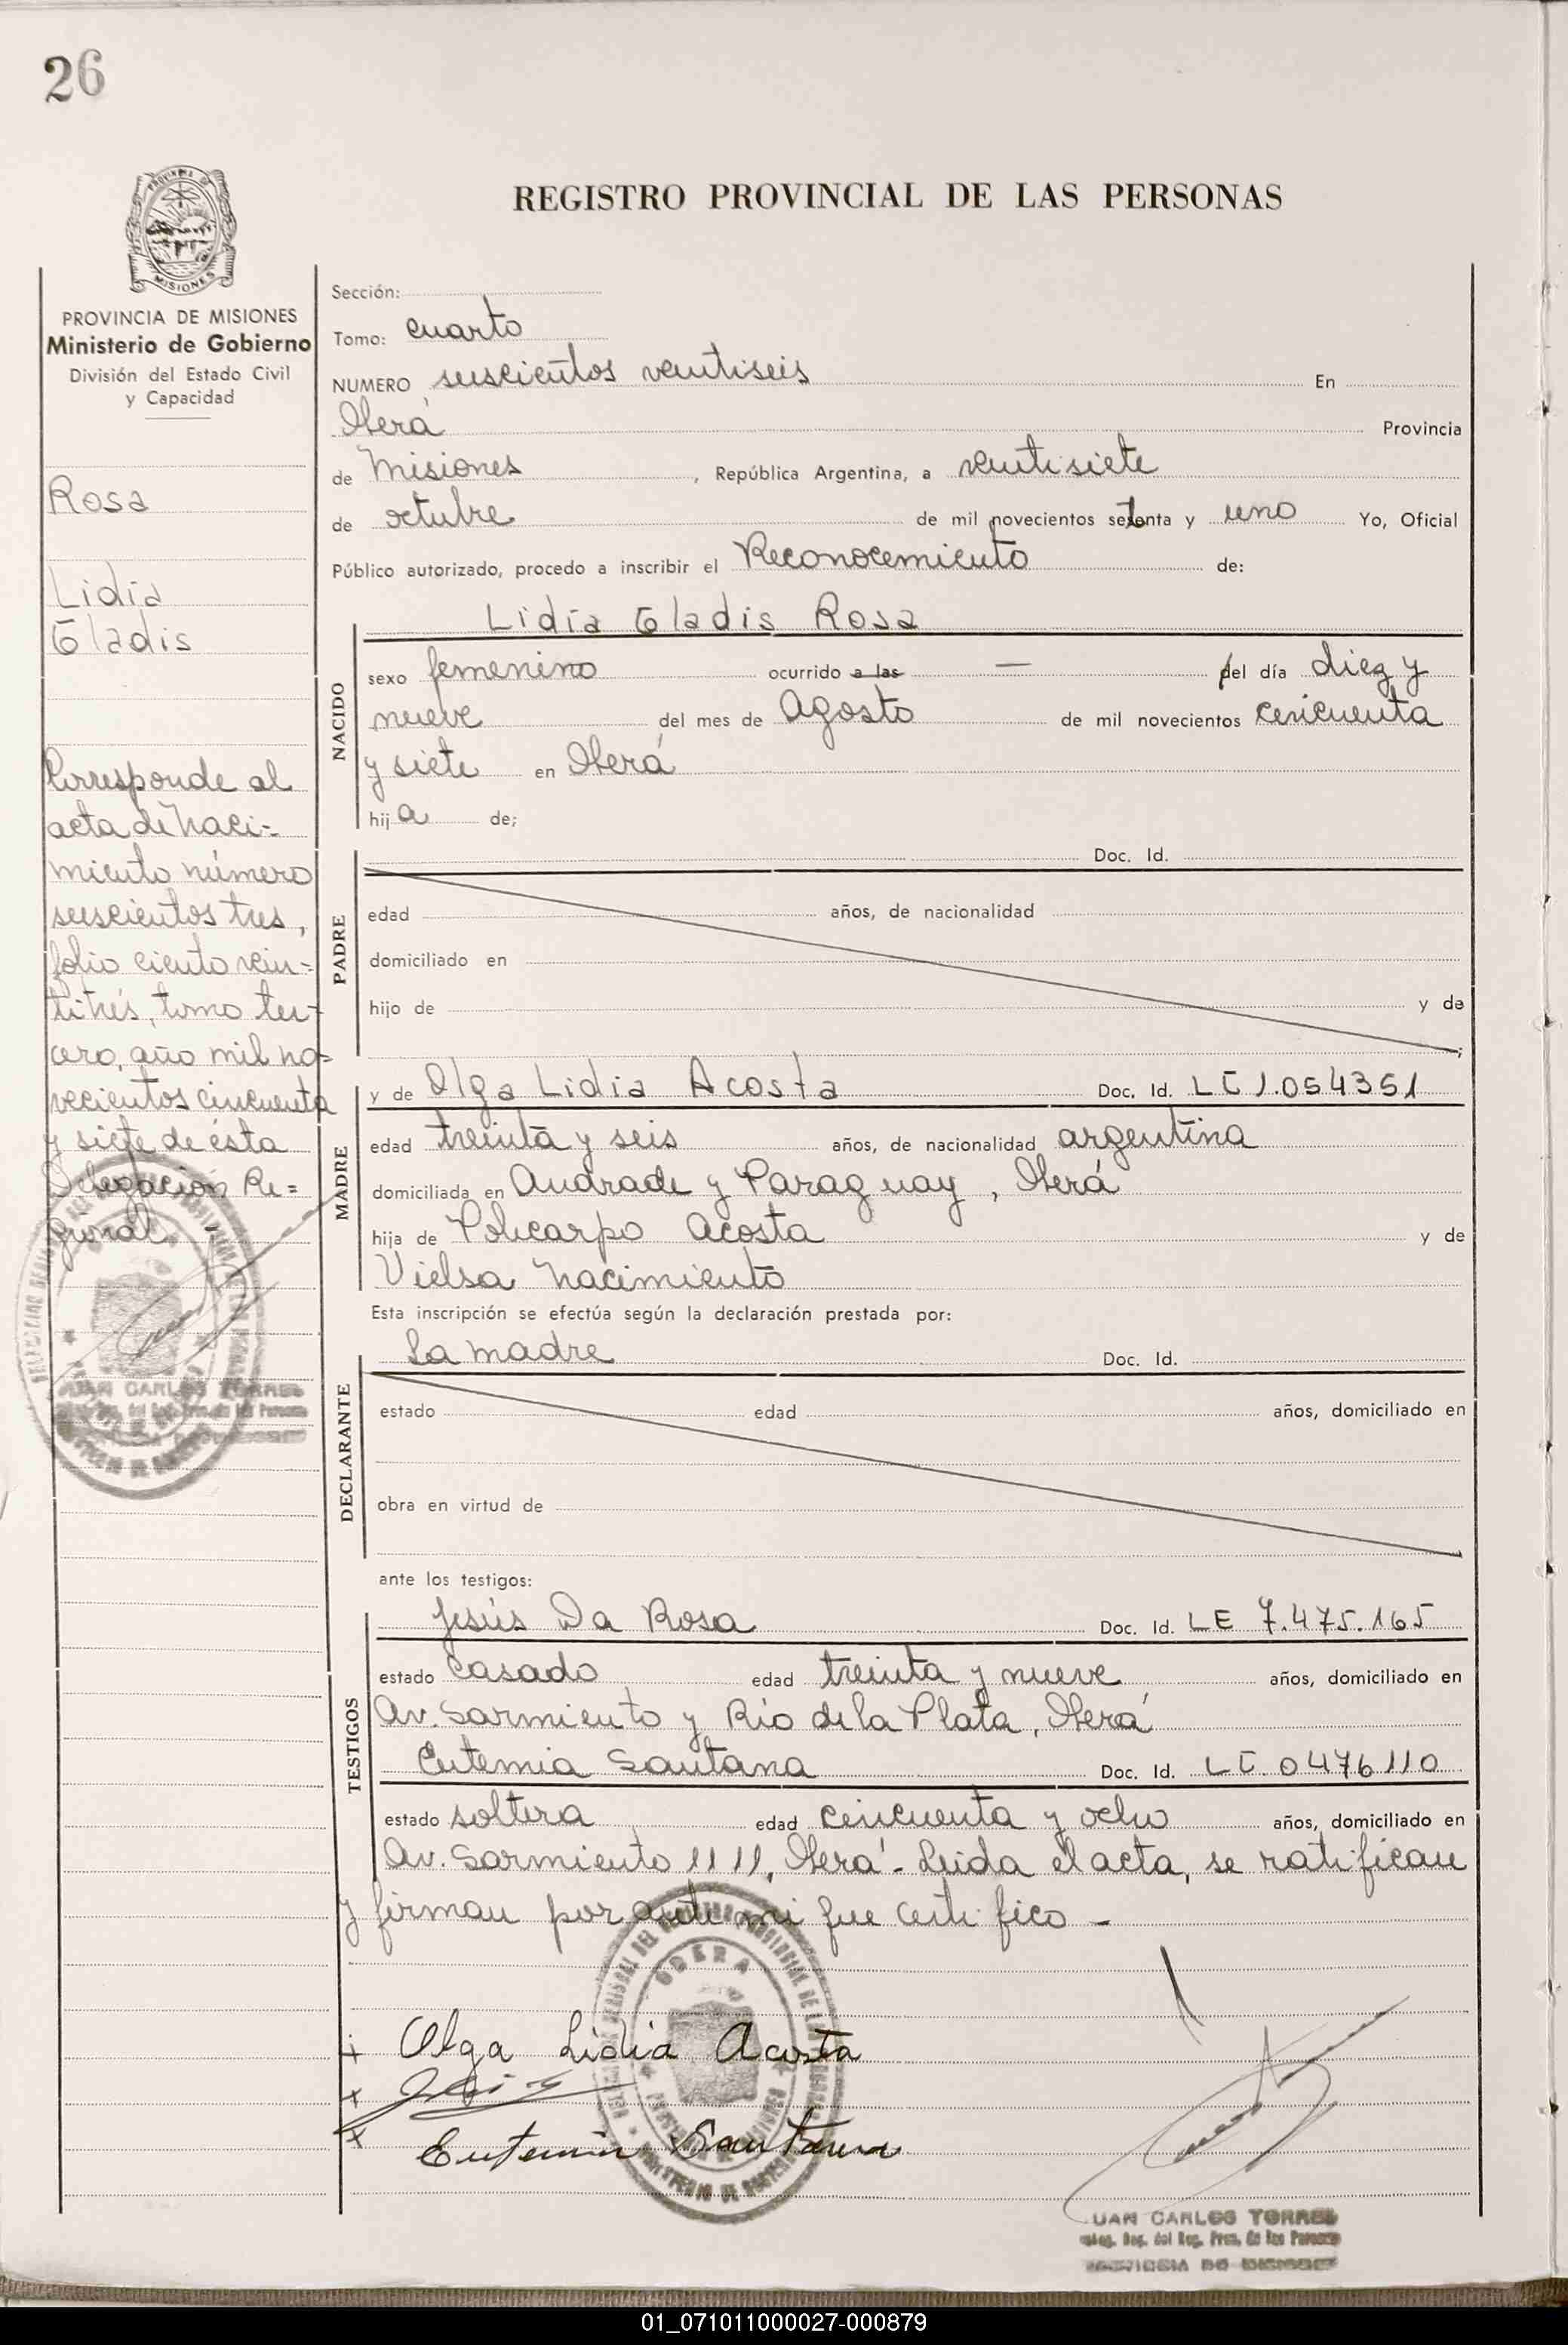 26
REGISTRO PROVINCIAL DE LAS PERSONAS
MISIONES
PROVINCIA DE MISIONES
Ministerio de Gobierno
División del Estado Civil
y Capacidad
Rosa
Lidia
Gladis
Corresponde al
acta de naci-
miento número
seiscientos tres,
folio ciento vein-
titrés, tomo ter-
cero, año mil no-
vecientos cincuenta
y siete de ésta
Delegación Re=
gional.
JUAN CARLOS TORRES
Sección:
Tomo: cuarto
NUMERO seiscientos veintiseis En
Oberá Provincia
de Misiones, República Argentina, a veintisiete
de octubre de mil novecientos setenta y uno Yo, Oficial
Público autorizado, procedo a inscribir el Reconocemiento de:
Lidia Gladis Rosa
NACIDO
sexo femenino ocurrido a las — del día diez y
nueve del mes de Agosto de mil novecientos cincuenta
y siete en Oberá
hij a de;
PADRE
Doc. Id.
edad años, de nacionalidad
domiciliado en
hijo de y de
;
MADRE
y de Olga Lidia Acosta Doc. Id. LC 1.054351
edad treinta y seis años, de nacionalidad argentina
domiciliada en Andrade y Paraguay, Oberá
hija de Policarpo Acosta y de
Vielsa Nacimiento
Esta inscripción se efectúa según la declaración prestada por:
DECLARANTE
La madre Doc. Id.
estado edad años, domiciliado en
obra en virtud de
ante los testigos:
TESTIGOS
Jesús Da Rosa Doc. Id. LE 7.475.165
estado casado edad treinta y nueve años, domiciliado en
Av. Sarmiento y Río de la Plata, Oberá
Eutemia Santana Doc. Id. LC. 0476110
estado soltera edad cincuenta y ocho años, domiciliado en
Av. Sarmiento 1111, Oberá - Leída el acta, se ratifican
y firman por ante mi que certifico -
OBERA
+ Olga Lidia Acosta
x
x Eutemia Santana
JUAN CARLOS TORRES
01_071011000027-000879